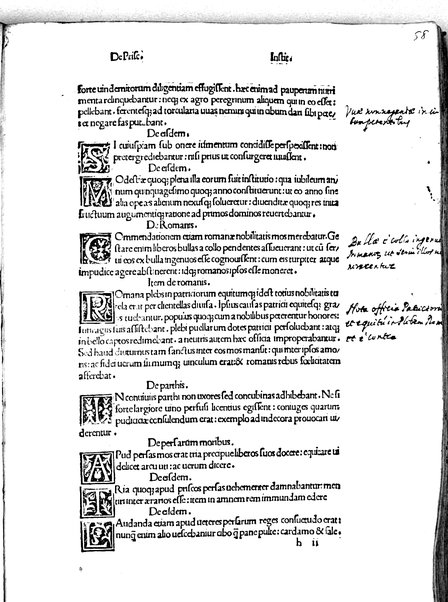 58
De Prisc. Instit.
forte uindemitorum diligentiam effugissent. hæc enim ad pauperum nutri
menta relinquebantur: neq; ex agro peregrinum aliquem qui in eo esset:
pellebant. ferentesq; ad torcularia uuas nemini qui in cibum dari sibi petes
et negare fas putabant.
De eisdem.
SI cuiuspiam sub onere iumentum concidisse perspexissent: non
pretergrediebantur: nisi prius ut consurgere iuuissent.
De eisdem.
MOdestiæ quoq; plena illa eorum fuit institutio: qua iubileum an
num quinquagesimo quoq; anno constituerunt: ut eo anno sine
alia ope as alienum nexusq; solueretur: diuenditæ quoq; res inita
fructuum augumentiq; ratione ad primos dominos reuertebantur.
De Romanis.
COmmendationem etiam romanæ nobilitatis mos merebatur. Ge
stare enim liberos bullas a collo pendentes assueuerant: ut cū ser
ui eos ex bulla ingenuos esse cognouissent: cum eis turpiter atque
impudice agere abstinerent: idq; romanos ipsos esse moneret.
Item de romanis.
ROmana plebs in patriciorum equitumq; idest totius nobilitatis tu
tela erat per clientelas diuisa. Ipsius causas patricii equitesq; gra
tis tuebantur. populus quoq; cum a nobilibus peterentur honores,
suffragiis suis assistebant. plebi puellarum dotes patrici persoluebant: atq;
in bello captos redimebant. a neutris autem hæc officia improperabantur.
Sed haud diuturnus tam sanctus inter eos mos mansit: qui inter ipsos amo
ris: ac fidei uerum firmumq; uinculum erat: & romanis rebus fœlicitatem
afferebat.
De parthis.
IN conuiuiis parthi non uxores sed concubinas adhibebant. Ne si
forte largiore uino perfusi licentius egissent: coniuges quarum
pudicitiæ consulendum erat: exemplo ad indecora prouocari ui
derentur.
De persarum moribus.
APud persas mos erat tria precipue liberos suos docere: equitare ui
delicet arcu uti: ac uerum dicere.
De eisdem.
TRia quoq; apud priscos persas uehementer damnabantur: men
tiri inter ærarios esse: item in amnem rem immundam edere
De eisdem.
LAudanda etiam apud ueteres persarum reges consuetudo erat:
nunq̄ enim alio uescebantur cibo q̄ pane puta: cardamo & sale.
h ii